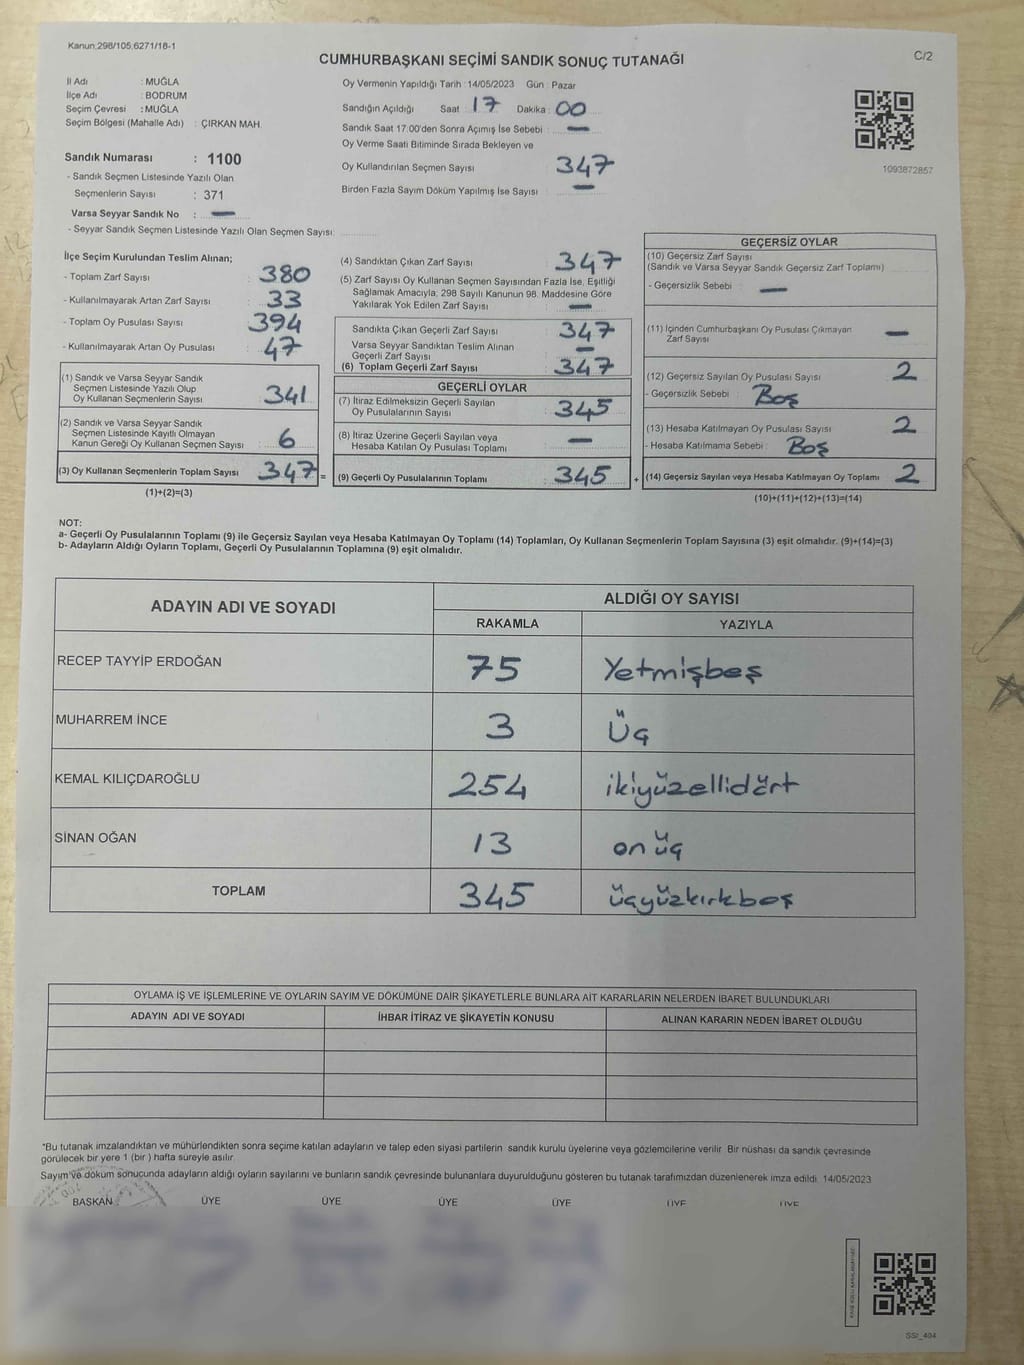 Kanun:298/105,6271/18-1
C/2
CUMHURBAŞKANI SEÇİMİ SANDIK SONUÇ TUTANAĞI
İl Adı : MUĞLA
İlçe Adı : BODRUM
Seçim Çevresi : MUĞLA
Seçim Bölgesi (Mahalle Adı) : ÇIRKAN MAH.
Sandık Numarası : 1100
- Sandık Seçmen Listesinde Yazılı Olan
Seçmenlerin Sayısı : 371
Varsa Seyyar Sandık No : —
- Seyyar Sandık Seçmen Listesinde Yazılı Olan Seçmen Sayısı:
Oy Vermenin Yapıldığı Tarih :14/05/2023 Gün : Pazar
Sandığın Açıldığı Saat : 17 Dakika : 00
Sandık Saat 17:00'den Sonra Açımış İse Sebebi : —
Oy Verme Saati Bitiminde Sırada Bekleyen ve
Oy Kullandırılan Seçmen Sayısı : 347
Birden Fazla Sayım Döküm Yapılmış İse Sayısı : —
1093872857
İlçe Seçim Kurulundan Teslim Alınan;
- Toplam Zarf Sayısı : 380
- Kullanılmayarak Artan Zarf Sayısı : 33
- Toplam Oy Pusulası Sayısı : 394
- Kullanılmayarak Artan Oy Pusulası : 47
(1) Sandık ve Varsa Seyyar Sandık
Seçmen Listesinde Yazılı Olup
Oy Kullanan Seçmenlerin Sayısı : 341
(2) Sandık ve Varsa Seyyar Sandık
Seçmen Listesinde Kayıtlı Olmayan
Kanun Gereği Oy Kullanan Seçmen Sayısı : 6
(3) Oy Kullanan Seçmenlerin Toplam Sayısı : 347 =
(1)+(2)=(3)
(4) Sandıktan Çıkan Zarf Sayısı : 347
(5) Zarf Sayısı Oy Kullanan Seçmen Sayısından Fazla İse, Eşitliği
Sağlamak Amacıyla; 298 Sayılı Kanunun 98. Maddesine Göre
Yakılarak Yok Edilen Zarf Sayısı : —
Sandıkta Çıkan Geçerli Zarf Sayısı : 347
Varsa Seyyar Sandıktan Teslim Alınan
Geçerli Zarf Sayısı : —
(6) Toplam Geçerli Zarf Sayısı : 347
GEÇERLİ OYLAR
(7) İtiraz Edilmeksizin Geçerli Sayılan
Oy Pusulalarının Sayısı : 345
(8) İtiraz Üzerine Geçerli Sayılan veya
Hesaba Katılan Oy Pusulası Toplamı : —
(9) Geçerli Oy Pusulalarının Toplamı : 345 +
GEÇERSİZ OYLAR
(10) Geçersiz Zarf Sayısı
(Sandık ve Varsa Seyyar Sandık Geçersiz Zarf Toplamı)
- Geçersizlik Sebebi : —
(11) İçinden Cumhurbaşkanı Oy Pusulası Çıkmayan
Zarf Sayısı : —
(12) Geçersiz Sayılan Oy Pusulası Sayısı : 2
- Geçersizlik Sebebi : Boş
(13) Hesaba Katılmayan Oy Pusulası Sayısı : 2
- Hesaba Katılmama Sebebi : Boş
(14) Geçersiz Sayılan veya Hesaba Katılmayan Oy Toplamı : 2
(10)+(11)+(12)+(13)=(14)
NOT:
a- Geçerli Oy Pusulalarının Toplamı (9) ile Geçersiz Sayılan veya Hesaba Katılmayan Oy Toplamı (14) Toplamları, Oy Kullanan Seçmenlerin Toplam Sayısına (3) eşit olmalıdır. (9)+(14)=(3)
b- Adayların Aldığı Oyların Toplamı, Geçerli Oy Pusulalarının Toplamına (9) eşit olmalıdır.
ADAYIN ADI VE SOYADI ALDIĞI OY SAYISI
RAKAMLA YAZIYLA
RECEP TAYYİP ERDOĞAN 75 Yetmişbeş
MUHARREM İNCE 3 Üç
KEMAL KILIÇDAROĞLU 254 ikiyüzellidört
SİNAN OĞAN 13 on üç
TOPLAM 345 üçyüzkırkbeş
OYLAMA İŞ VE İŞLEMLERİNE VE OYLARIN SAYIM VE DÖKÜMÜNE DAİR ŞİKAYETLERLE BUNLARA AİT KARARLARIN NELERDEN İBARET BULUNDUKLARI
ADAYIN ADI VE SOYADI İHBAR İTİRAZ VE ŞİKAYETİN KONUSU ALINAN KARARIN NEDEN İBARET OLDUĞU
*Bu tutanak imzalandıktan ve mühürlendikten sonra seçime katılan adayların ve talep eden siyasi partilerin sandık kurulu üyelerine veya gözlemcilerine verilir. Bir nüshası da sandık çevresinde
görülecek bir yere 1 (bir ) hafta süreyle asılır.
Sayım ve döküm sonucunda adayların aldığı oyların sayılarını ve bunların sandık çevresinde bulunanlara duyurulduğunu gösteren bu tutanak tarafımızdan düzenlenerek imza edildi. 14/05/2023
BAŞKAN ÜYE ÜYE ÜYE ÜYE ÜYE ÜYE
SSI_404